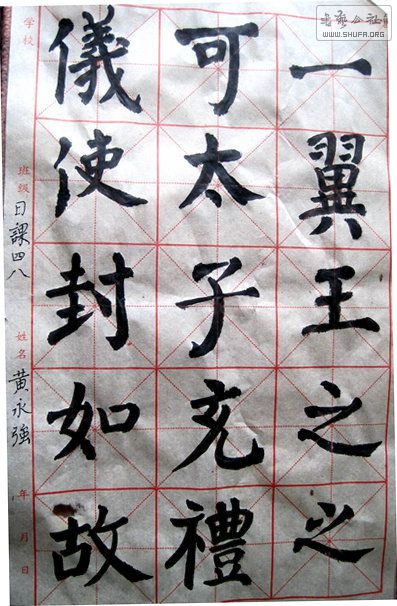 一翼王之之
可太子充禮
儀使封如故
学校
班级 日課四八
姓名 黄永強
年 月 日
书艺公社
WWW.SHUFA.ORG